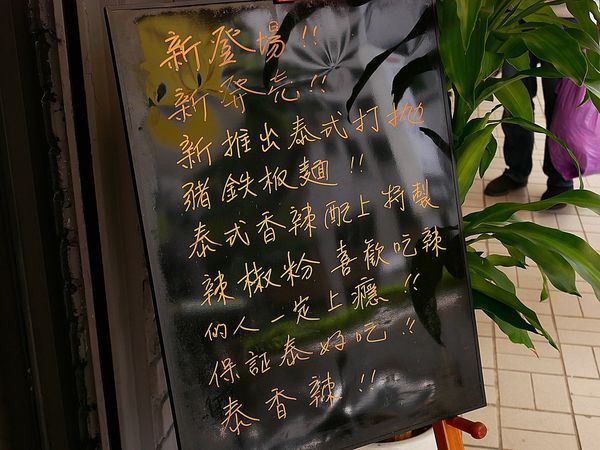 新登場!!
新発売!!
新推出泰式打拋
豬鉄板麵!!
泰式香辣配上特製
辣椒粉喜歡吃辣
的人一定上癮!!
保証泰好吃!!
泰香辣!!